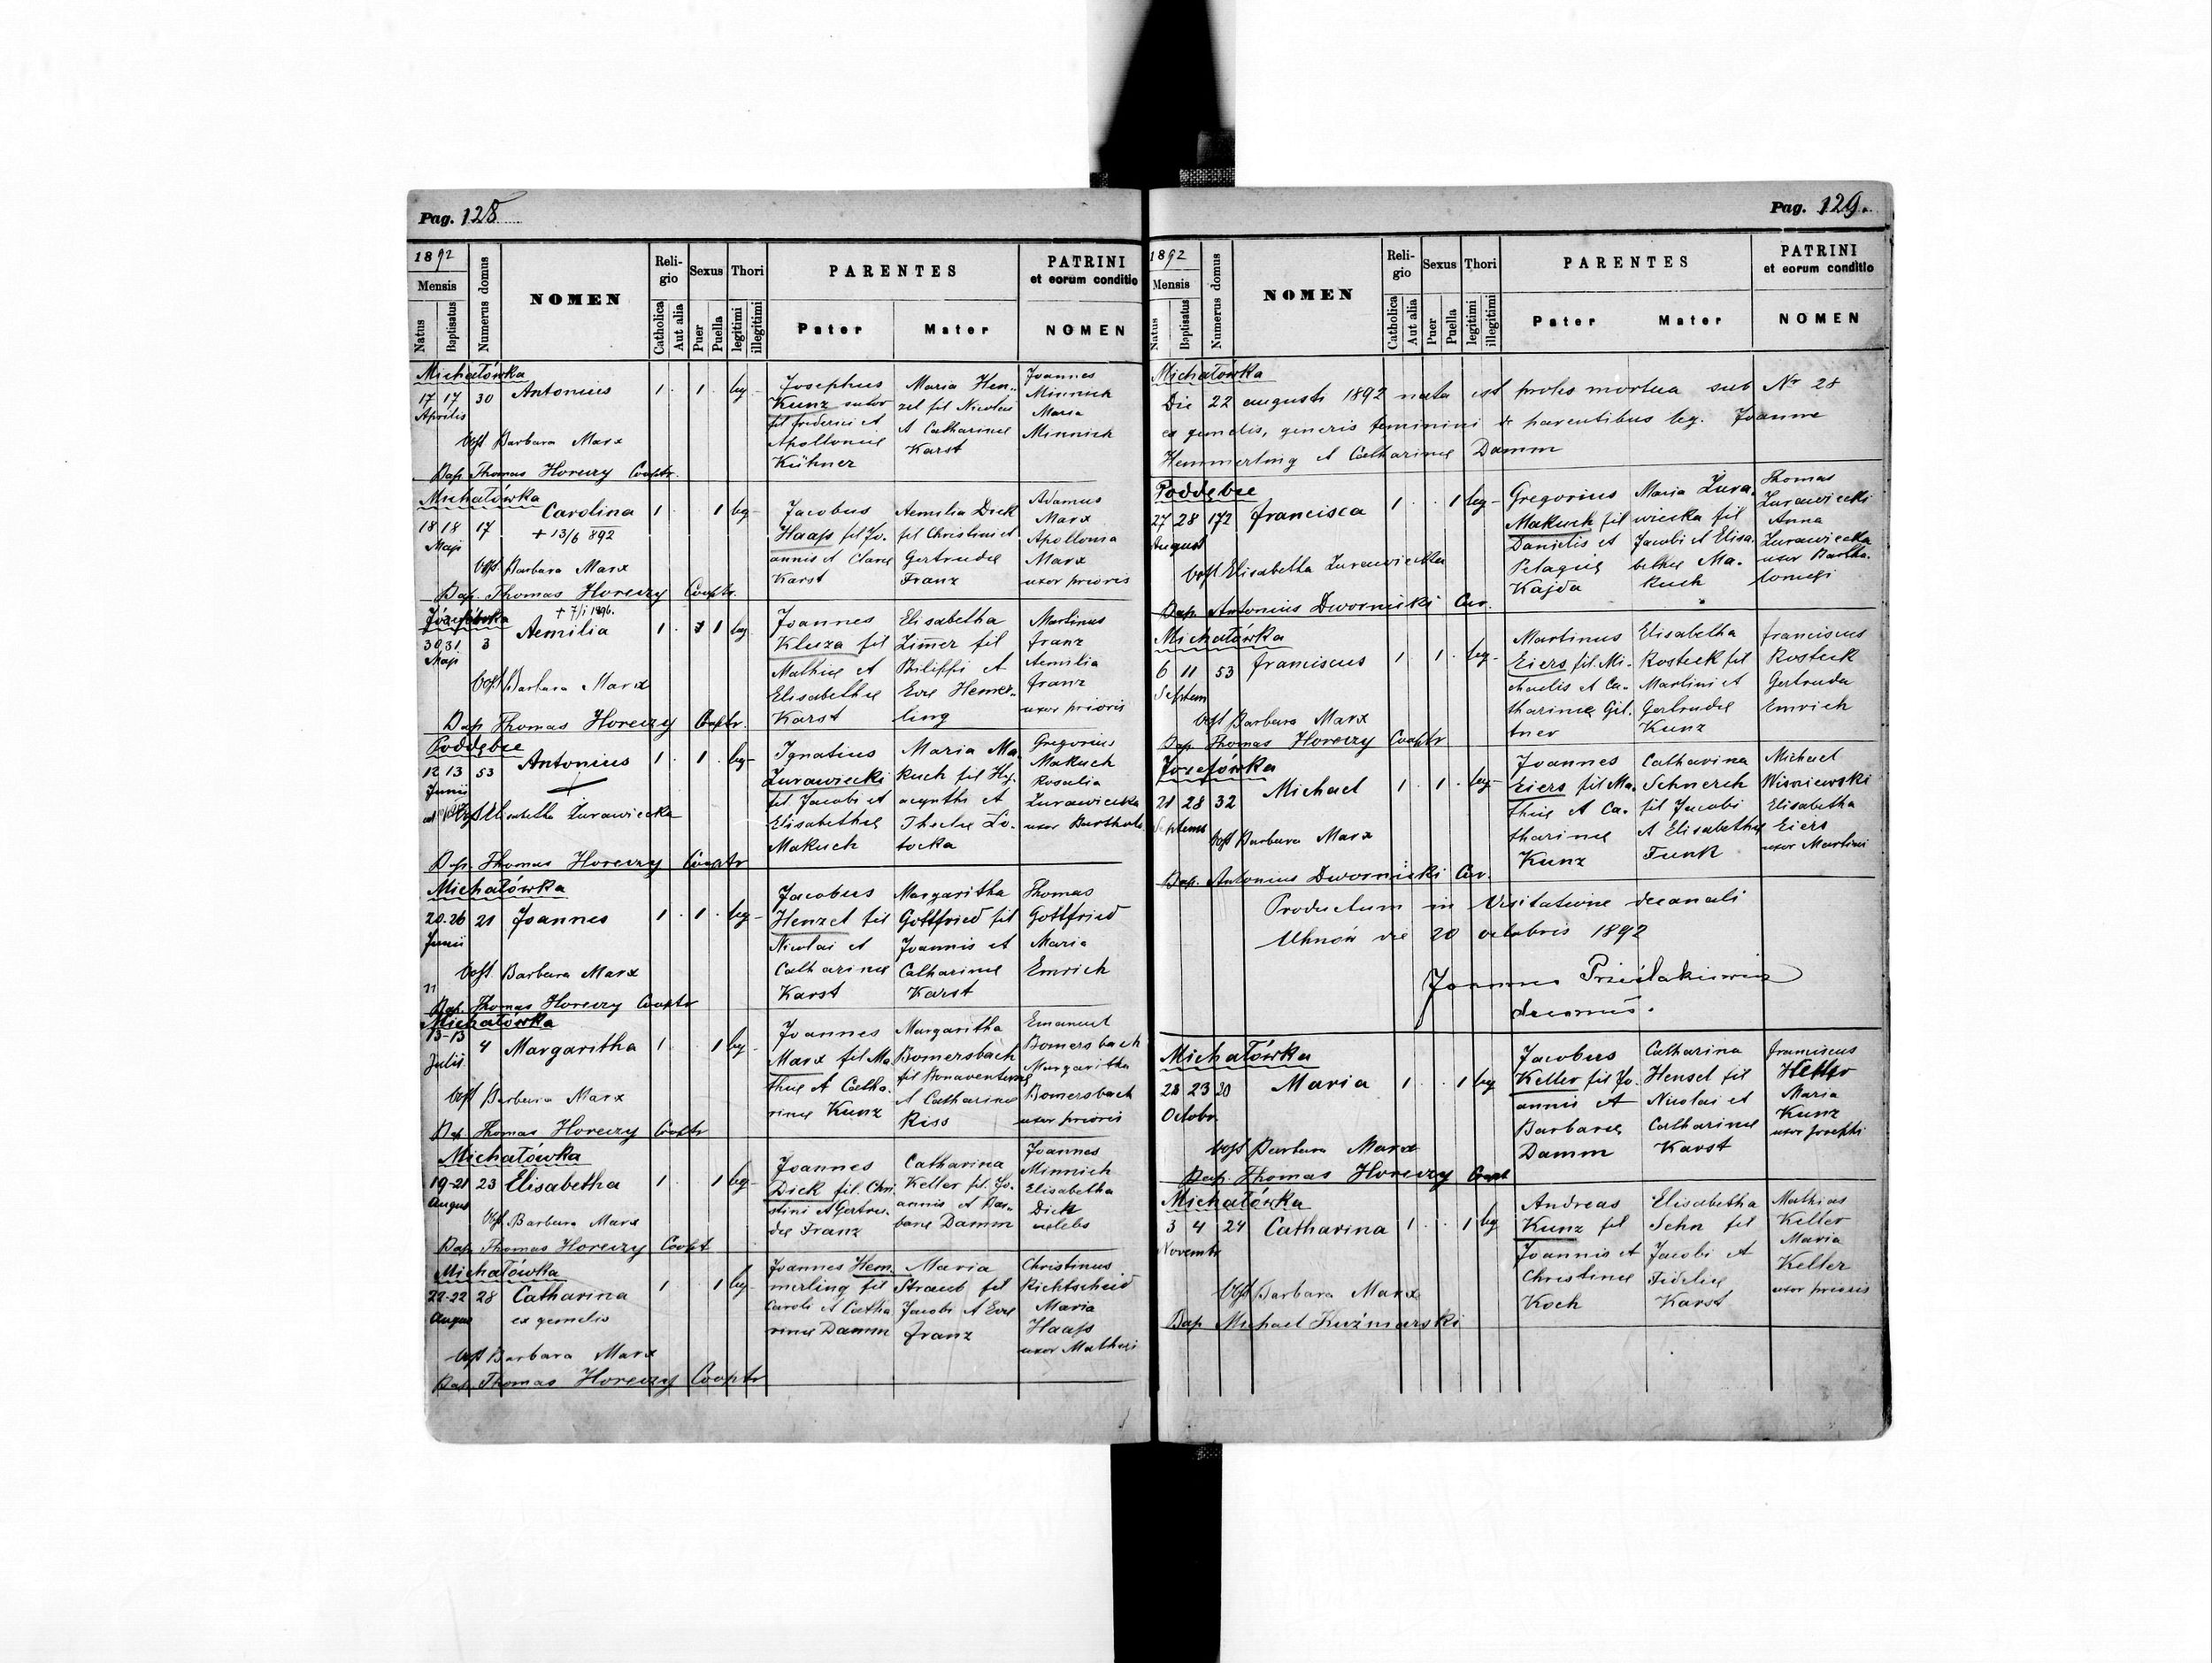 Pag. 128
1892
Mensis
Natus
Baptisatus
Numerus domus
NOMEN
Reli-
gio
Catholica
Aut alia
Sexus
Puer
Puella
Thori
legitimi
illegitimi
PARENTES
Pater
Mater
PATRINI
et eorum conditio
NOMEN
Michałówka
17 17 30 Antonius 1 1 leg
Aprilis
Obst Barbara Marx
Bap. Thomas Horeczy Cooptr.
Josephus
Kunz sutor
fil Frederici et
Apolloniae
Kühner
Maria Hen-
zel fil Nicolai
et Catharinae
Karst
Joannes
Minnich
Maria
Minnich
Michałówka
18 18 17 Carolina 1 1 leg
Maji + 13/6 892
Obst Barbara Marx
Bap. Thomas Horeczy Cooptr.
Jacobus
Haaps fil Jo-
annis et Clarae
Karst
Aemilia Dick
fil Christini et
Gertrudae
Franz
Adamus
Marx
Apollonia
Marx
uxor prioris
Józefówka
+ 7/1 1896.
30 31 3 Aemilia 1 1 leg
Maji
Obst Barbara Marx
Bap Thomas Horeczy Cooptr.
Joannes
Kluza fil
Mathiae et
Elisabethae
Karst
Elisabetha
Zimer fil
Philippi et
Evae Hemer-
ling
Martinus
Franz
Aemilia
Franz
uxor prioris
Poddębce
12 13 53 Antonius 1 1 leg
Junii
Obst Elisabetha Żurawiecka
Bap. Thomas Horeczy Cooptr
Ignatius
Żurawiecki
fil. Jacobi et
Elisabethae
Makuch
Maria Ma-
kuch fil Hy-
acynthi et
Theclae Ło-
tocka
Gregorius
Makuch
Rosalia
Żurawiecka
uxor Barthol.
Michałówka
20 26 21 Joannes 1 1 leg
Junii
Obst. Barbara Marx
Bap. Thomas Horeczy Cooptr
Jacobus
Henzel fil
Nicolai et
Catharinae
Karst
Margaritha
Gottfried fil
Joannis et
Catharinae
Karst
Thomas
Gottfried
Maria
Emrich
Michałówka
13-13 4 Margaritha 1 1 leg
Julii
Obst Barbara Marx
Bap. Thomas Horeczy Cooptr
Joannes
Marx fil Ma-
thiae et Catha-
rinae Kunz
Margaritha
Bomersbach
fil Bonaventurae
et Catharinae
Riss
Emanuel
Bomersbach
Margaritha
Bomersbach
uxor prioris
Michałówka
19-21 23 Elisabetha 1 1 leg
Augus
Obst. Barbara Marx
Bap. Thomas Horeczy Coopt
Joannes
Dick fil. Chri-
stini et Gertru-
dae Franz
Catharina
Keller fil. Jo-
annis et Bar-
barae Damm
Joannes
Minnich
Elisabetha
Dick
coelebs
Michałówka
22-22 28 Catharina 1 1 leg
Augus ex gemelis
Obst Barbara Marx
Bap. Thomas Horeczy Cooptr
Joannes Hem-
merling fil
Caroli et Catha
rinae Damm
Maria
Straub fil
Jacobi et Evae
Franz
Christinus
Richtscheid
Maria
Haaps
uxor Mathiei
Pag. 129.
1892
Mensis
Natus
Baptisatus
Numerus domus
NOMEN
Reli-
gio
Catholica
Aut alia
Sexus
Puer
Puella
Thori
legitimi
illegitimi
PARENTES
Pater
Mater
PATRINI
et eorum conditio
NOMEN
Michałówka
Die 22 augusti 1892 nata est proles mortua sub Nr 28
ex gemelis, generis feminini de parentibus leg. Joanne
Hemmerling et Catharinae Damm
Poddębce
27 28 172 Francisca 1 1 leg
August
Obst Elisabetha Żurawiecka
Bap. Antonius Dwornicki Cur.
Gregorius
Makuch fil
Danielis et
Pelagiae
Kajda
Maria Żura-
wiecka fil
Jacobi et Elisa-
bethae Ma-
kuch
Thomas
Żurawiecki
Anna
Żurawiecka
uxor Bartho-
lomei
Michałówka
6 11 53 Franciscus 1 1 leg
Septem
Obst Barbara Marx
Bap Thomas Horeczy Cooptr
Martinus
Eiers fil. Mi-
chaelis et Ca-
tharinae Gil-
tner
Elisabetha
Rosteck fil
Martini et
Gertrudae
Kunz
Franciscus
Rosteck
Gertruda
Emrich
Jozefówka
21 28 32 Michael 1 1 leg
Septems
Obst Barbara Marx
Bap. Antonius Dwornicki Cur.
Joannes
Eiers fil Ma-
thiae et Ca-
tharinae
Kunz
Catharina
Schnerch
fil Jacobi
et Elisabethae
Funk
Michael
Wisniewski
Elisabetha
Eiers
uxor Martini
Productum in Visitatione decanali
Uhnów die 20 octobris 1892
Joannes
decanus.
Michałówka
22 23 20 Maria 1 1 leg
Octobr.
Obst Barbara Marx
Bap. Thomas Horeczy Coopt
Jacobus
Keller fil Jo-
annis et
Barbarae
Damm
Catharina
Hensel fil
Nicolai et
Catharinae
Karst
Franciscus
Maria
Kunz
uxor Josephi
Michałówka
3 4 24 Catharina 1 1 leg
Novembr
Obst Barbara Marx
Bap Michael Kuźmarski
Andreas
Kunz fil
Joannis et
Christinae
Koch
Elisabetha
Sehn fil
Jacobi et
Fideliae
Karst
Mathias
Keller
Maria
Keller
uxor prioris